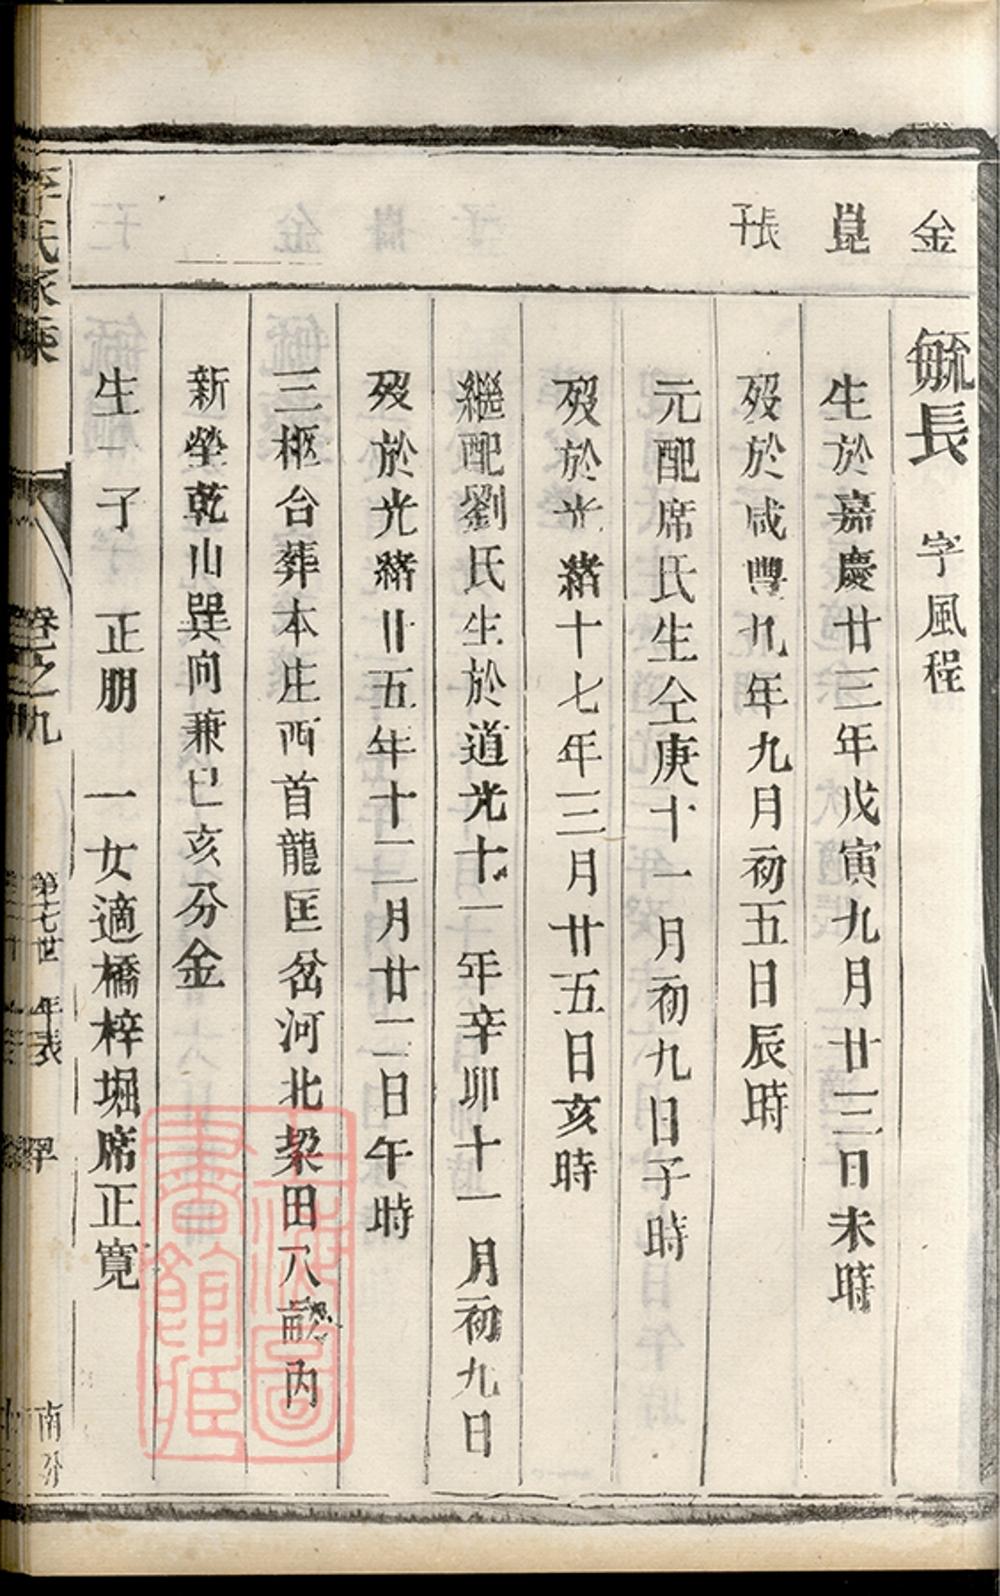 金
崑
長子
毓長 字風程
生於嘉慶廿三年戊寅九月廿三日未時
歿於咸豐九年九月初五日辰時
元配席氏生仝庚十一月初九日子時
歿於光緒十七年三月廿五日亥時
繼配劉氏生於道光十一年辛卯十一月初九日
歿於光緒廿五年十二月廿二日午時
三柩台葬本庄西首龍匡岔河北梁田八畝內
新塋乾山巽向兼巳亥分金
生一子 正朋 一女適橋梓堀席正寬
李氏家乘
卷之九
第十七世 年表
南分
上海圖書館藏